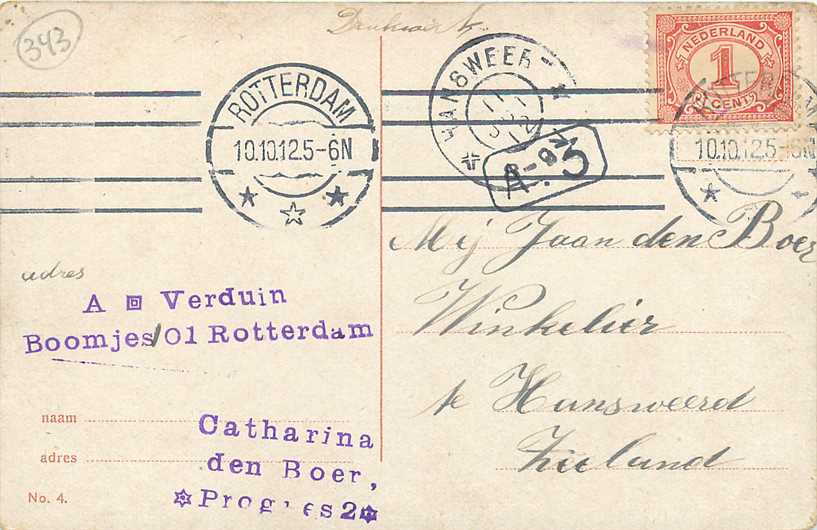 343
Drukwerk
NEDERLAND
1
CENT
ROTTERDAM
10.10.12.5-6N
HANSWEERT
10.10.12.5-6N
A
Mej Jaan den Boer
Winkelier
te Hansweerd
Zeeland
adres
A Verduin
Boomjes 101 Rotterdam
naam
adres
No. 4.
Catharina
den Boer,
Progres 2